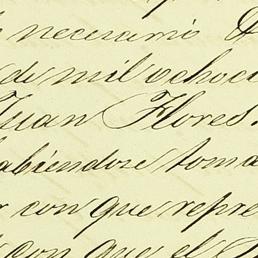 necesario
de mil ochoci
Juan Flores
abiendose toma
con que repre
con que el